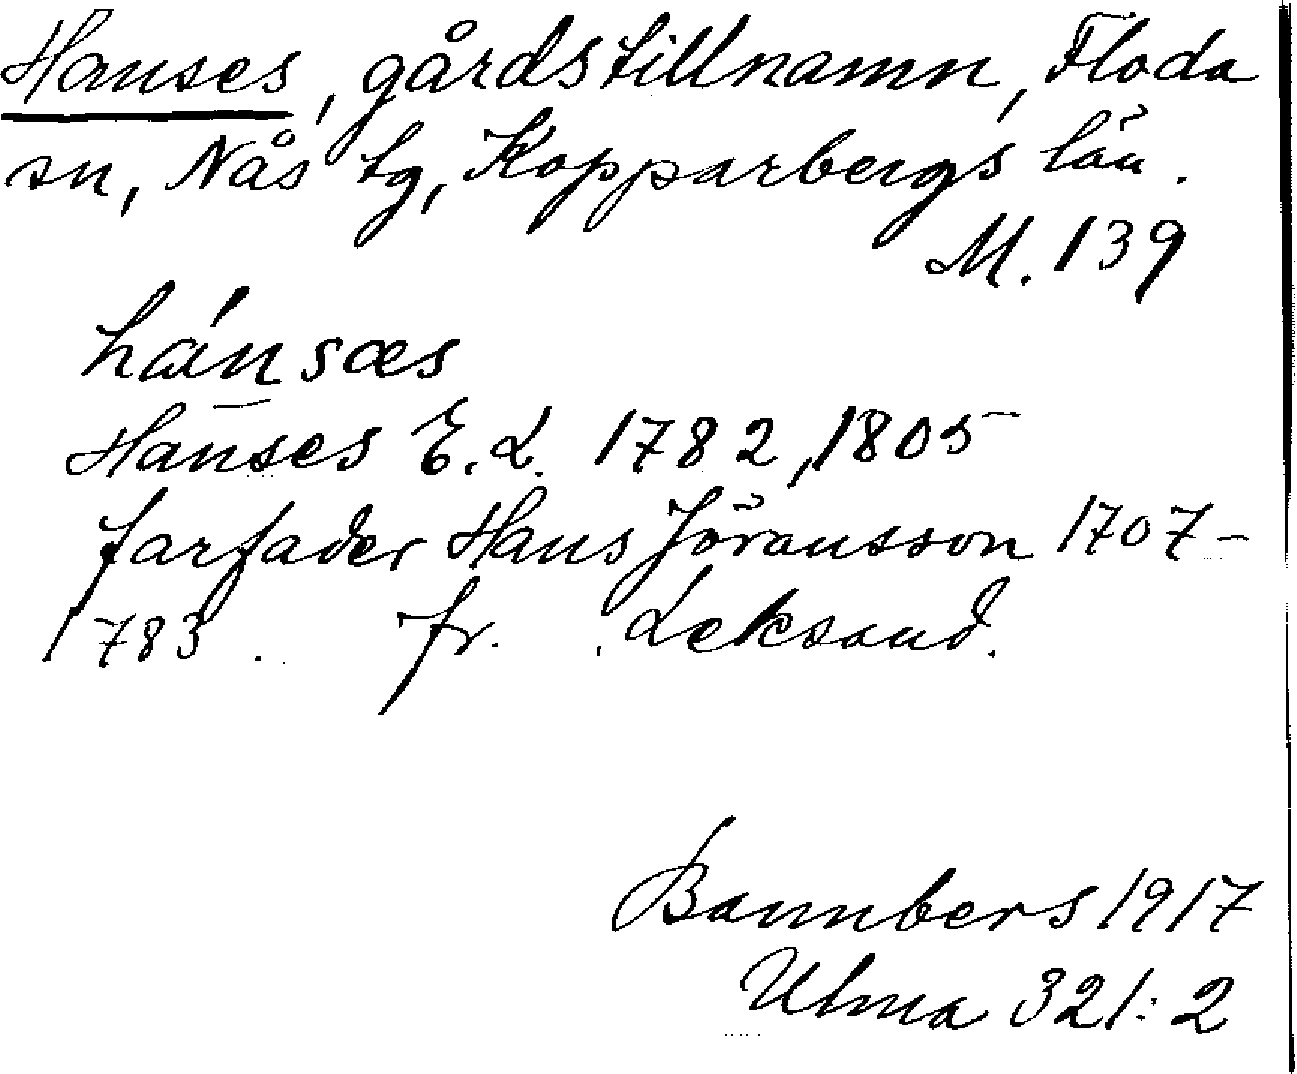 Hanses, gårdstillnamn, Floda
sn, Nås tg, Kopparbergs län.
M. 139
hánsæs
Hanses E. L. 1782, 1805
farfader Hans Jöransson 1707-
1783. fr. Leksand.
Bannbers 1917
Ulma 321:2